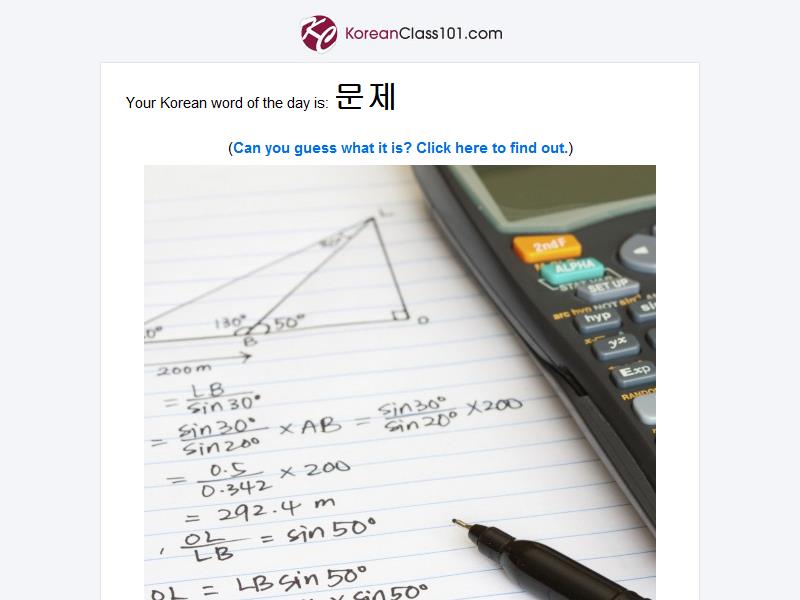 KoreanClass101.com
Your Korean word of the day is: 문제
(Can you guess what it is? Click here to find out.)
L
130° 50°
B
O
200m
= LB / sin30°
= sin30° / sin20° × AB = sin30° / sin20° × 200
= 0.5 / 0.342 × 200
= 292.4 m
, OL / LB = sin 50°
OL = LB sin 50°
2ndF
ALPHA
SET UP
arc hyp
hyp
yx
Exp